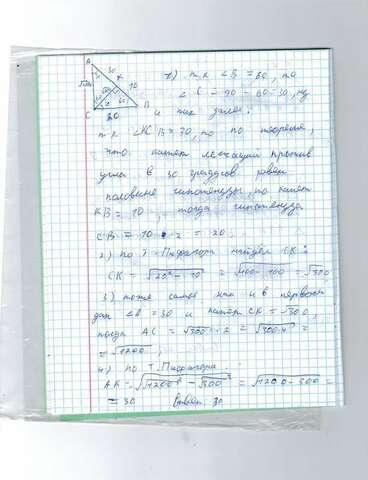 A
30
К
10
√1200
C
20
B
1) т.к ∠B = 60, то
= 90 - 60 = 30, ну
и так далее:
т.к ∠KCB = 30, то по теореме,
что катет лежащий против
угла в 30 градусов равен
половине гипотенузы, то катет
KB = 10, тогда гипотенуза
CB = 10 · 2 = 20.
2) по т. Пифагора найдём CK:
CK = √20² - 10² = √400 - 100 = √300
3) тоже самое как и в первом
= 30 и катет CK = √300,
тогда AC = √300 · 2 = √300·4 =
= √1200,
4) по т. Пифагора
AK = √√1200² - √300² = √1200 - 300 =
= 30 Ответ 30